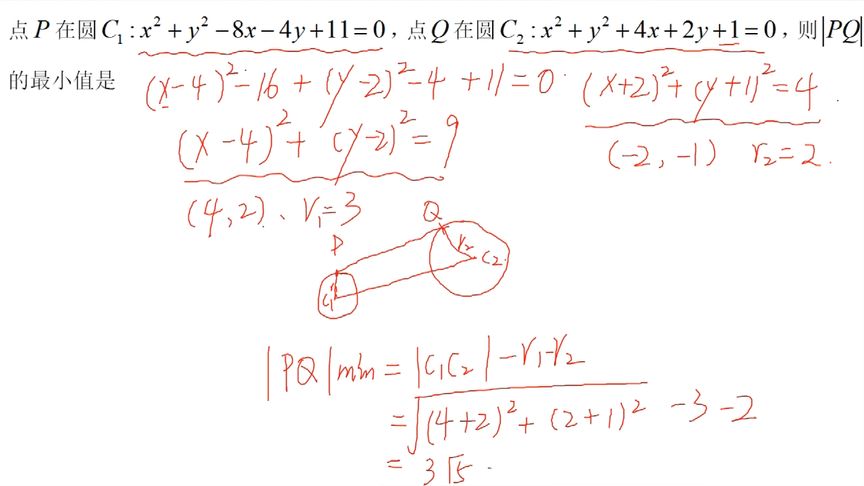 点P在圆C₁:x²+y²−8x−4y+11=0，点Q在圆C₂:x²+y²+4x+2y+1=0，则|PQ|
的最小值是
(x-4)²-16+(y-2)²-4+11=0. (x+2)²+(y+1)²=4.
(x-4)²+(y-2)²=9
(-2,-1) r₂=2.
(4,2)、r₁=3
Q
P
r₂ C₂.
C₁
|PQ|min=|C₁C₂|-r₁-r₂
=√(4+2)²+(2+1)² -3-2
=3√5.